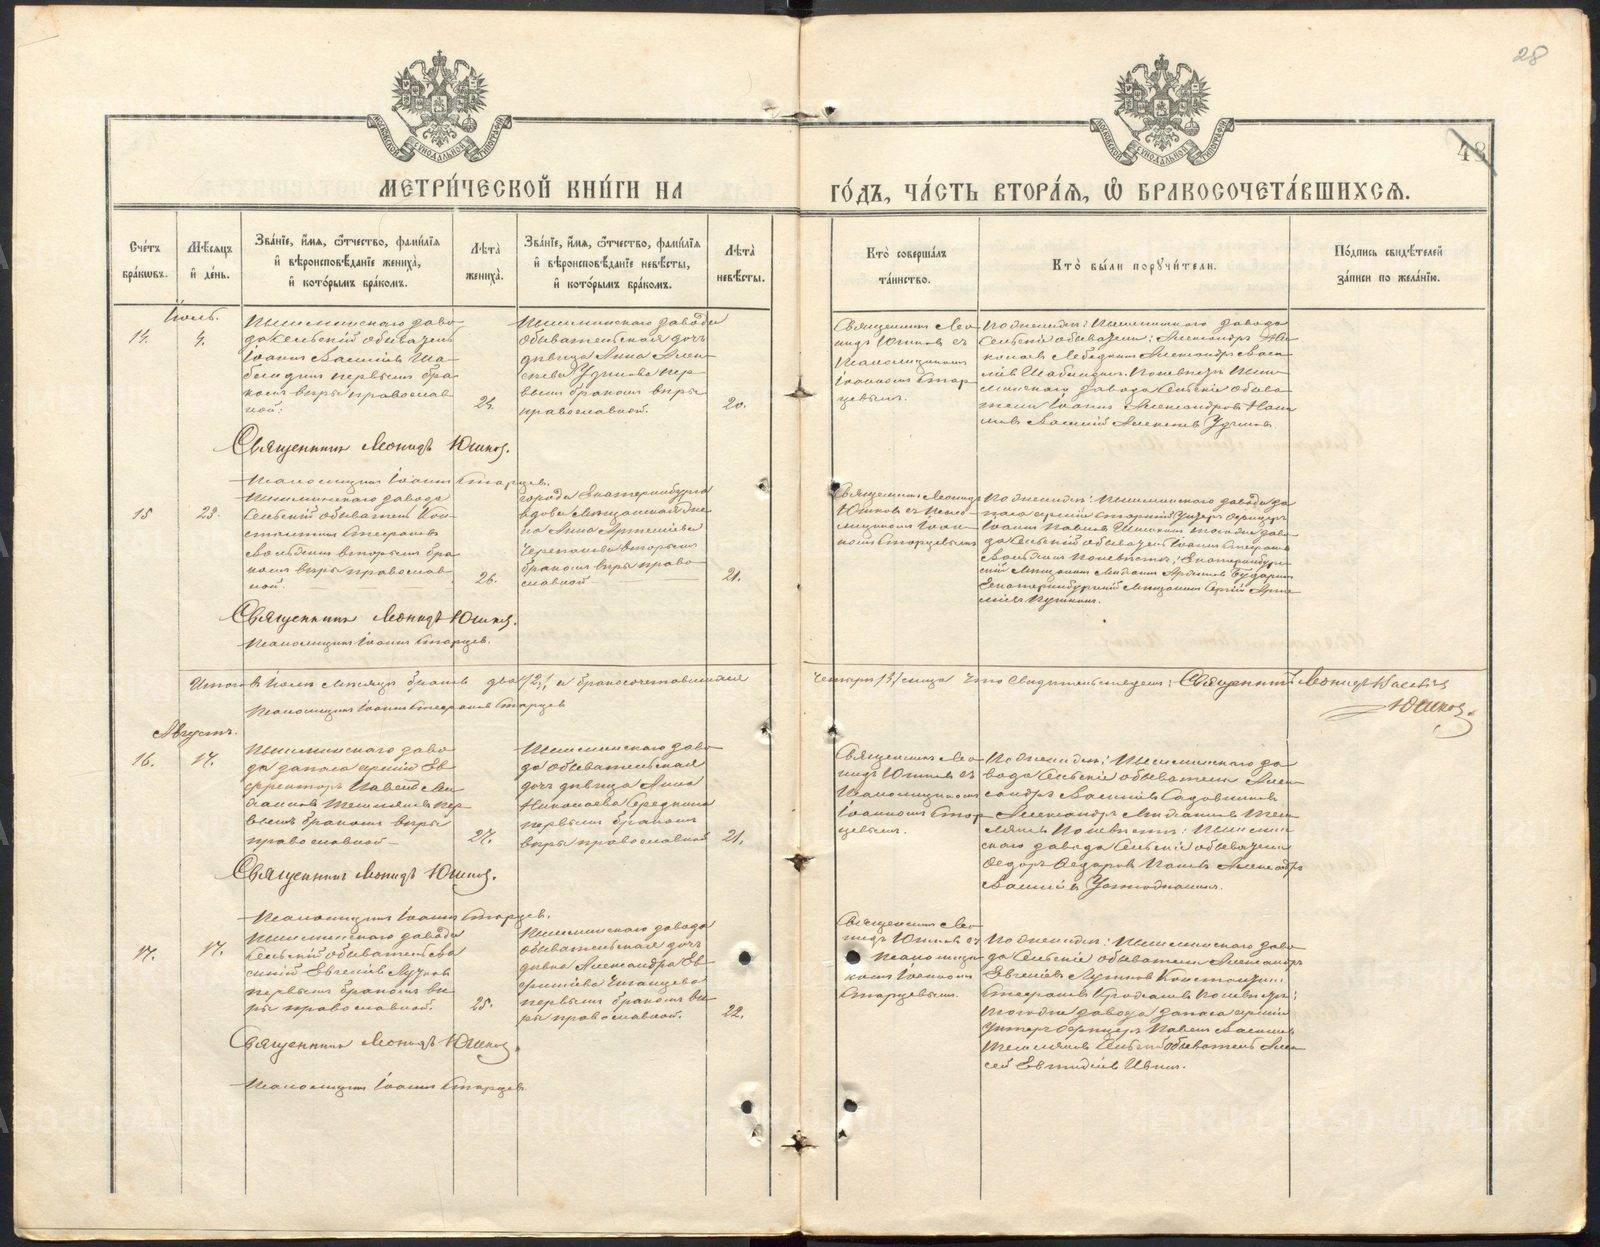 28
48
МОСКОВСКОЙ СѴНОДАЛЬНОЙ ТИПОГРАФІИ
МОСКОВСКОЙ СѴНОДАЛЬНОЙ ТИПОГРАФІИ
МЕТРИ́ЧЕСКОЙ КНИ́ГИ НА ГО́ДЪ, ЧА́СТЬ ВТОРА́Я, Ѡ҆ БРАКОСОЧЕТА́ВШИХСЯ.
Сче́тъ
бра́кѡвъ.
Мѣ́сяцъ
и҆ де́нь.
Зва́нїе, и҆́мя, ѻ҆́тчество, фами́лїя
и҆ вѣроисповѣ́данїе жениха̀,
и҆ кото́рымъ бра́комъ.
Лѣта̀
жениха̀.
Зва́нїе, и҆́мя, ѻ҆́тчество, фами́лїя
и҆ вѣроисповѣ́данїе невѣ́сты,
и҆ кото́рымъ бра́комъ.
Лѣта̀
невѣ́сты.
Кто̀ соверша́лъ
та́инство.
Кто̀ бы́ли порꙋчи́тели.
По́дпись свидѣ́телей
за́писи по жела́нїю.
Іюль.
14.
4.
Пышминскаго заво-
да сельскій обыватель
Іоаннъ Василіевъ Ша-
балдинъ первымъ бра-
комъ вѣры православ-
ной.
24.
Пышминскаго завода
обывательская дочь
дѣвица Анна Алек-
сѣева пер-
вымъ бракомъ вѣры
православной.
20.
Священникъ Лео-
нидъ Юшковъ съ
Псаломщикомъ
Іоанномъ Стар-
цевымъ.
По женихѣ: Пышминскаго завода
сельскіе обыватели: Александръ Ни-
колаевъ Лебедкинъ Александръ Васи-
ліевъ Шабалдинъ. По невѣстѣ Пыш-
минскаго завода сельскіе обыва-
тели Іоаннъ Александровъ
Василій Алексѣевъ
Священникъ Леонидъ Юшковъ.
Псаломщикъ Іоаннъ Старцевъ.
15
23.
Пышминскаго завода
сельскій обыватель Кон-
стантинъ Стефановъ
вторымъ бра-
комъ вѣры православ-
ной.
26.
города Екатеринбурга
вдова мѣщанская
Анна Артеміева
Черепанова вторымъ
бракомъ вѣры право-
славной
21.
Священникъ Леонидъ
Юшковъ съ Псало-
мщикомъ Іоан-
номъ Старцевымъ
По женихѣ: Пышминскаго завода за-
паса арміи старшій унтеръ офицеръ
Іоаннъ Павловъ того же заво-
да сельскій обыватель Іоаннъ Стефановъ
По невѣстѣ: Екатеринбург-
скій мѣщанинъ
Екатеринбургскій мѣщанинъ Сергій Арте-
міевъ
Священникъ Леонидъ Юшковъ.
Псаломщикъ Іоаннъ Старцевъ.
Итого въ Іюлѣ мѣсяцѣ браковъ два /2/, а бракосочетавшихся четыре /4/ лица что свидѣтельствуемъ: Священникъ Леонидъ
Юшковъ.
Псаломщикъ Іоаннъ Стефановъ Старцевъ
Августъ.
16.
17.
Пышминскаго заво-
да запаса арміи Еф-
рейторъ Павелъ Ми-
хаиловъ пер-
вымъ бракомъ вѣры
православной
27.
Пышминскаго заво-
да обывательская
дочь дѣвица Анна
Николаева Середкина
первымъ бракомъ
вѣры православной
21.
Священникъ Лео-
нидъ Юшковъ съ
Псаломщикомъ
Іоанномъ Стар-
цевымъ.
По женихѣ: Пышминскаго за-
вода сельскіе обыватели Алек-
сандръ Василіевъ Садовниковъ
Александръ Михаиловъ
По невѣстѣ: Пышмин-
скаго завода сельскіе обыватели
Ѳедоръ Ѳедоровъ Александръ
Василіевъ
Священникъ Леонидъ Юшковъ.
Псаломщикъ Іоаннъ Старцевъ.
17.
17.
Пышминскаго завода
сельскій обыватель Ва-
силій Евгеніевъ
первымъ бракомъ вѣ-
ры православной.
25.
Пышминскаго завода
обывательская дочь
дѣвица Александра
первымъ бракомъ вѣ-
ры православной.
22.
Священникъ Лео-
нидъ Юшковъ съ
Псаломщи-
комъ Іоанномъ
Старцевымъ.
По женихѣ: Пышминскаго заво-
да сельскіе обыватели Александръ
Евгеніевъ Константинъ
Стефановъ По невѣстѣ:
того же завода запаса арміи
унтеръ офицеръ Павелъ Василіевъ
сельскій обыватель Алек-
сѣй
Священникъ Леонидъ Юшковъ.
Псаломщикъ Іоаннъ Старцевъ.